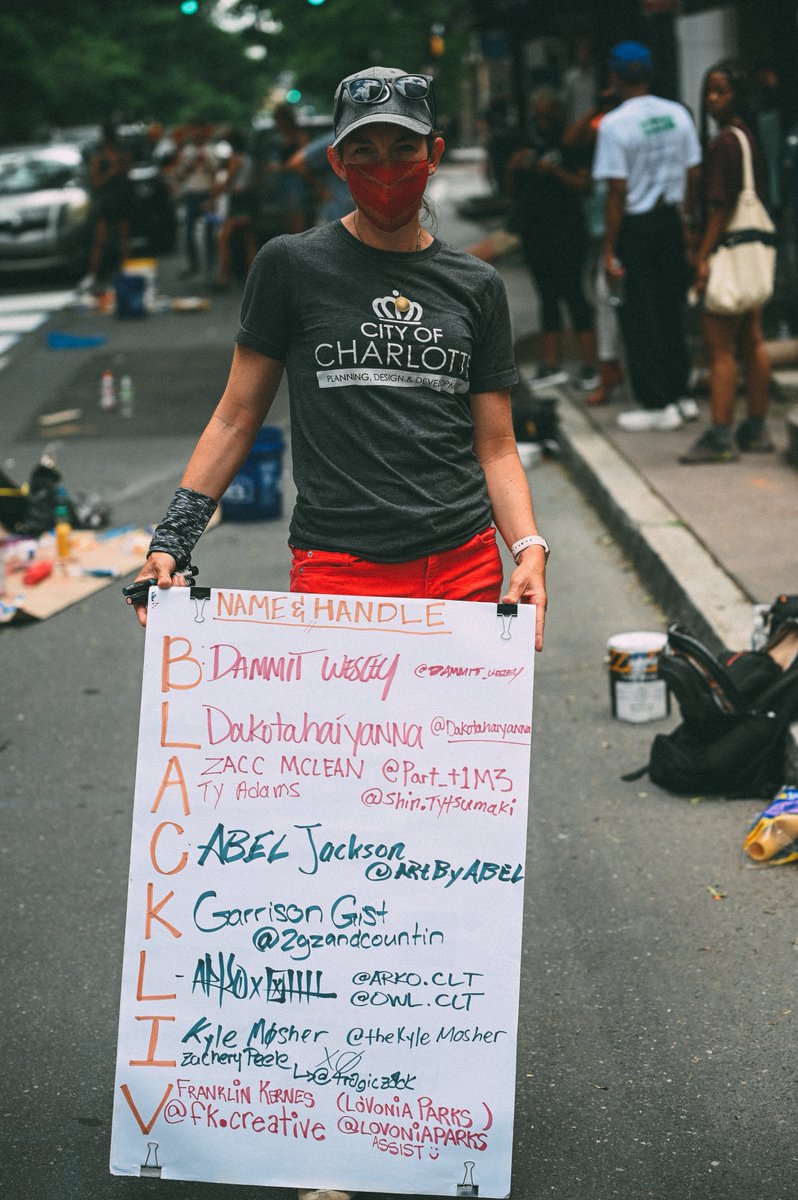 CITY OF
CHARLOTTE
PLANNING, DESIGN & DEVELOPMENT
NAME & HANDLE
B DAMMIT WESLEY @DAMMIT_WESLEY
L Dakotahaiyanna @Dakotahaiyanna
A ZACC MCLEAN @Part_t1M3
Ty Adams @Shin.Tytsumaki
C ABEL Jackson
@ARtByABEL
K Garrison Gist
@2gzandcountin
L - ARKO x @ARKO.CLT
@OWL.CLT
I Kyle Mosher @theKyleMosher
Zachery Peele
V FRANKLIN KERNES (LOVONIA PARKS)
@fk.creative @LOVONIAPARKS
ASSIST